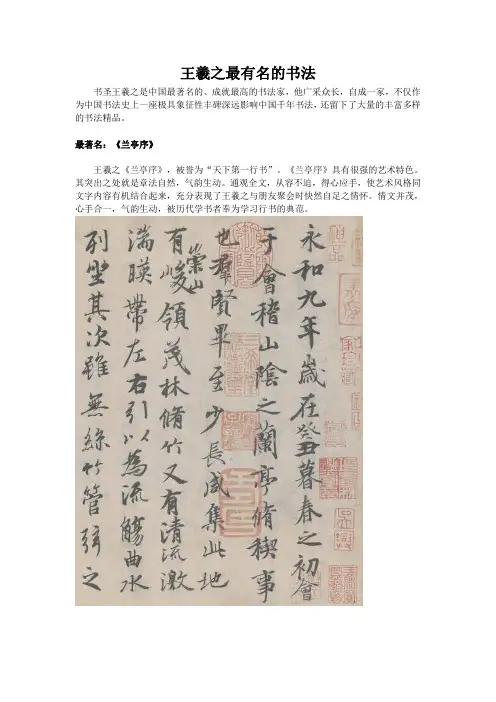 王羲之最有名的书法
书圣王羲之是中国最著名的、成就最高的书法家，他广采众长，自成一家，不仅作
为中国书法史上一座极具象征性丰碑深远影响中国千年书法，还留下了大量的丰富多样
的书法精品。
最著名：《兰亭序》
王羲之《兰亭序》，被誉为“天下第一行书”。《兰亭序》具有很强的艺术特色。
其突出之处就是章法自然，气韵生动。通观全文，从容不迫，得心应手，使艺术风格同
文字内容有机结合起来，充分表现了王羲之与朋友聚会时快然自足之情怀。情文并茂，
心手合一，气韵生动，被历代学书者奉为学习行书的典范。
永和九年歲在癸丑暮春之初會
于會稽山陰之蘭亭脩稧事
也羣賢畢至少長咸集此地
有崇山峻領茂林脩竹又有清流激
湍暎帶左右引以為流觴曲水
列坐其次雖無絲竹管弦之